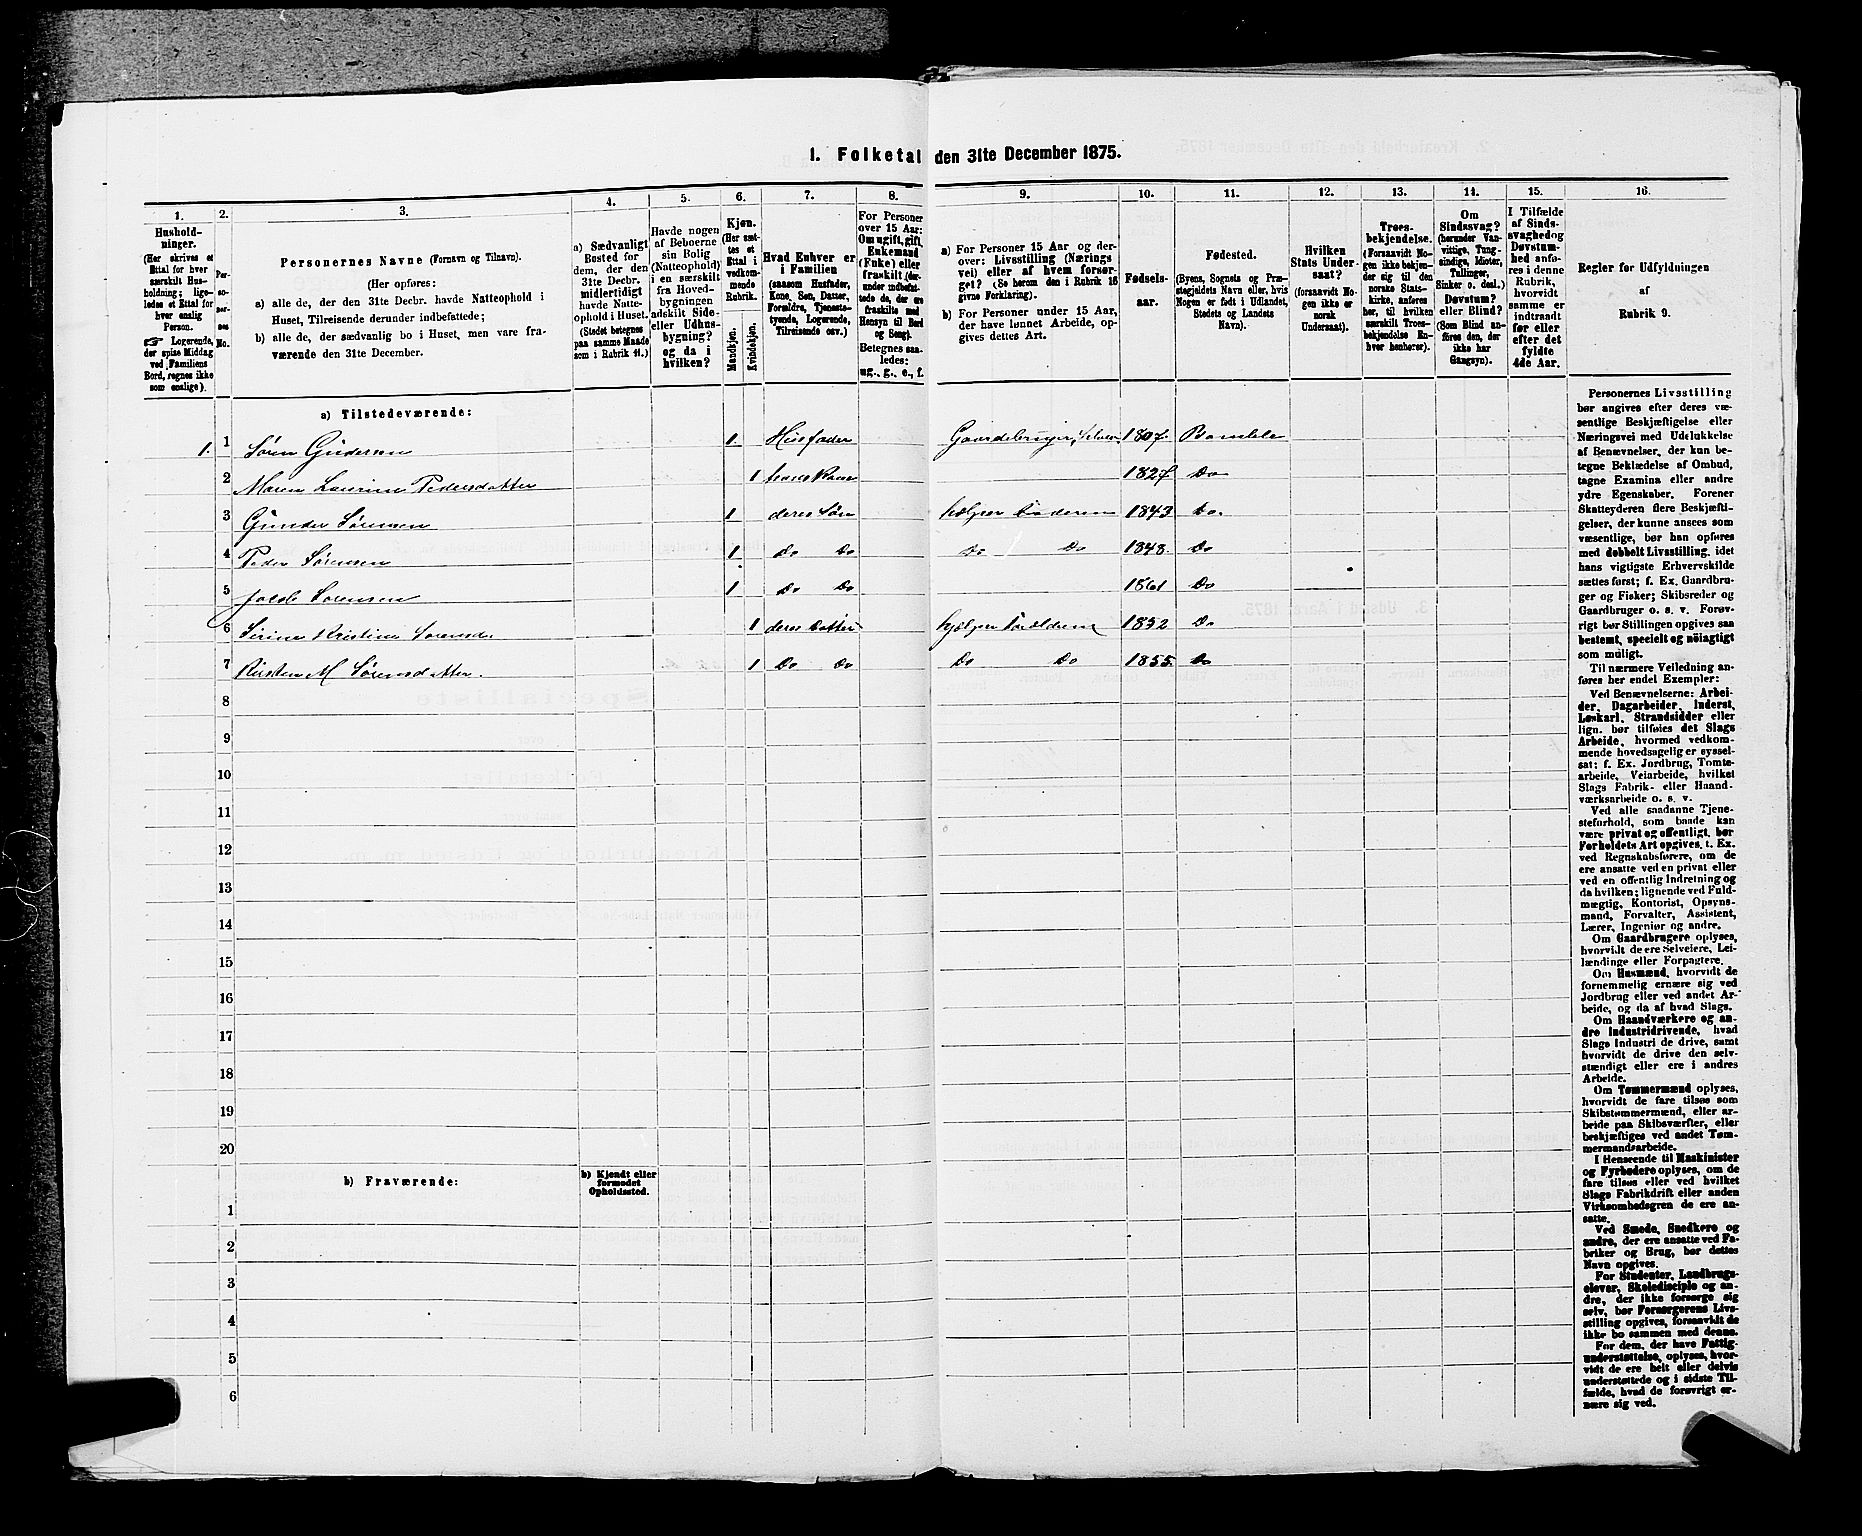 1. Folketal den 31te December 1875.
1.
Husholdninger.
(Her skrives et Ettal for hver særskilt Husholdning; ligeledes et Ettal for hver enslig Person.
☞ Logerende, der spise Middag ved Familiens Bord, regnes ikke som enslige).
2.
Personernes No.
3.
Personernes Navne (Fornavn og Tilnavn).
(Her opføres:
a) alle de, der den 31te Decbr. havde Natteophold i Huset, Tilreisende derunder indbefattede;
b) alle de, der sædvanlig bo i Huset, men vare fraværende den 31te December.
4.
a) Sædvanligt Bosted for dem, der den 31te Decbr. midlertidigt havde Natteophold i Huset.
(Stedet betegnes paa samme Maade som i Rubrik 11.)
5.
Havde nogen af Beboerne sin Bolig (Natteophold) i en særskilt fra Hovedbygningen adskilt Side- eller Udhusbygning? og da i hvilken?
6.
Kjøn.
(Her sættes et Ettal i vedkommende Rubrik.
Mandkjøn.
Kvindekjøn.
7.
Hvad Enhver er i Familien
(saasom Husfader, Kone, Søn, Datter, Forældre, Tjenestetyende, Logerende, Tilreisende osv.)
8.
For Personer over 15 Aar: Om ugift, gift, Enkemand (Enke) eller fraskilt (derunder indbefattede de, der ere fraskilte med Hensyn til Bord og Seng).
Betegnes saaledes:
ug., g., e., f.
9.
a) For Personer 15 Aar og derover: Livsstilling (Næringsvei) eller af hvem forsørget? (Se herom den i Rubrik 16 givne Forklaring).
b) For Personer under 15 Aar, der have lønnet Arbeide, opgives dettes Art.
10.
Fødselsaar.
11.
Fødested.
(Byens, Sognets og Præstegjeldets Navn eller, hvis Nogen er født i Udlandet, Stedets og Landets Navn).
12.
Hvilken Stats Undersaat?
(forsaavidt Nogen ikke er norsk Undersaat).
13.
Troesbekjendelse.
(Forsaavidt Nogen ikke bekjender sig til den norske Statskirke, anføres her, til hvilken særskilt Troesbekjendelse Enhver henhører).
14.
Om Sindssvag?
(herunder Vanvittige, Tungsindige, Idioter, Tullinger, Sinker o. desl.)
Døvstum? eller Blind?
(Som Blind anføres den, der ikke har Gangsyn).
15.
I Tilfælde af Sindssvaghed og Døvstumhed anføres i denne Rubrik, hvorvidt samme er indtraadt før eller efter det fyldte 4de Aar.
16.
Regler for Udfyldningen
af
Rubrik 9.
a) Tilstedeværende:
1. 1 Søren Gundersen 1. Husfader Gaardebruger, Selveier 1807. Bamble
2 Maren Laurine Pedersdatter 1 hans Kone 1827 Do
3 Gunder Sørensen 1 deres Søn hælper Foderen 1843 Do.
4 Peder Sørensen 1 Do Do Do Do 1848. Do
5 Jakob Sørensen 1 Do Do 1861 Do
6 Serine Kristine Sørensd. 1 deres Datter hjælper Foreldrene 1852 Do
7 Kirsten M Sørensdatter. 1 Do Do Do Do 1855. Do
8
9
10
11
12
13
14
15
16
17
18
19
20
b) Fraværende:
b) Kjendt eller formodet Opholdssted.
1
2
3
4
5
6
Personernes Livsstilling
bør angives efter deres væ-
sentlige Beskjæftigelse eller
Næringsvei med Udelukkelse
af Benævnelser, der kun be-
tegne Beklædelse af Ombud,
tagne Examina eller andre
ydre Egenskaber. Forener
Skatteyderen flere Beskjæfti-
gelser, der kunne ansees som
væsentlige, bør han opføres
med dobbelt Livsstilling, idet
hans vigtigste Erhvervskilde
sættes først; f. Ex. Gaardbru-
ger og Fisker; Skibsreder og
Gaardbruger o. s. v. Forøv-
rigt bør Stillingen opgives saa
bestemt, specielt og nöiagtigt
som muligt.
Til nærmere Veiledning an-
føres her endel Exempler:
Ved Benævnelserne: Arbei-
der, Dagarbeider, Inderst,
Løskarl, Strandsidder eller
lign. bør tilføies det Slags
Arbeide, hvormed vedkom-
mende hovedsagelig er syssel-
sat; f. Ex. Jordbrug, Tomte-
arbeide, Veiarbeide, hvilket
Slags Fabrik- eller Haand-
værksarbeide o. s. v.
Ved alle saadanne Tjene-
steforhold, som baade kan
være privat og offentligt, bør
Forholdets Art opgives, t. Ex.
ved Regnskabsførere, om de
ere ansatte ved en privat eller
ved en offentlig Indretning og
da hvilken; lignende ved Fuld-
mægtig, Kontorist, Opsyns-
mand, Forvalter, Assistent,
Lærer, Ingeniør og andre.
Om Gaardbrugere oplyses,
hvorvidt de ere Selveiere, Lei-
lændinge eller Forpagtere.
Om Husmænd, hvorvidt de
fornemmelig ernære sig ved
Jordbrug eller ved andet Ar-
beide, og da af hvad Slags.
Om Haandværkere og an-
dre Industridrivende, hvad
Slags Industri de drive, samt
hvorvidt de drive den selv-
stændigt eller ere i andres
Arbeide.
Om Tømmermænd oplyses,
hvorvidt de fare tilsøs som
Skibstømmermænd, eller ar-
beide paa Skibsværfter, eller
beskjæftiges ved andet Tøm-
mermandsarbeide.
I Henseende til Maskinister
og Fyrbødere oplyses, om de
fare tilsøs eller ved hvilket
Slags Fabrikdrift eller anden
Virksomhedsgren de ere an-
satte.
Ved Smede, Snedkere og
andre, der ere ansatte ved Fa-
briker og Brug, bør dettes
Navn opgives.
For Studenter, Landbrugs-
elever, Skoledisciple og an-
dre, der ikke forsørge sig
selv, bør Forsørgerens Livs-
stilling opgives, forsaavidt de
ikke bo sammen med denne.
For dem, der have Fattig-
understøttelse, oplyses, hvor-
vidt de ere helt eller delvis
understøttede og i sidste Til-
fælde, hvad de forøvrigt er-
nære sig ved.